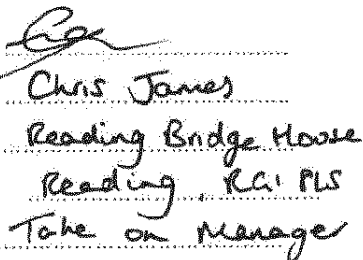 Chris James
Reading Bridge House
Reading, RG1 8LS
Take on Manager